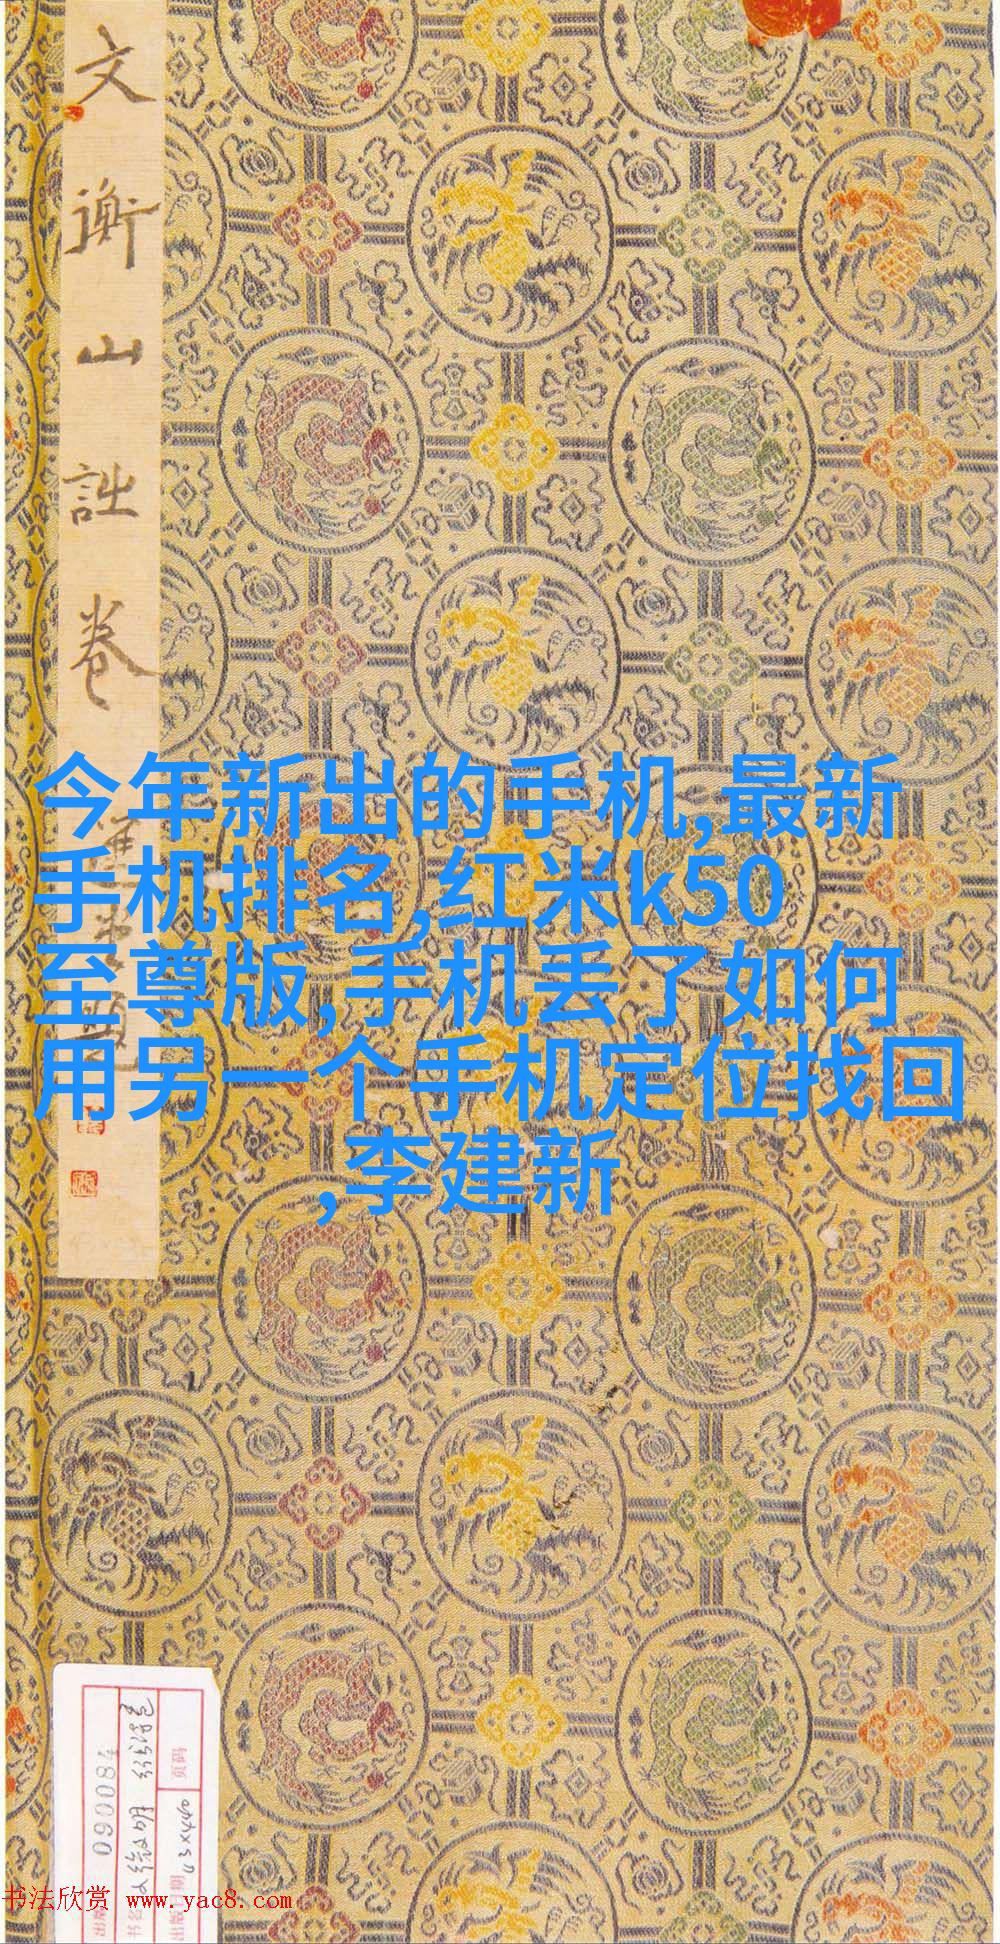 文
衡
山
詘
卷
今年新出的手机,最新
手机排名,红米k50
至尊版,手机丢了如何
用另一个手机定位找回
,李建新
090084
页码
43×440
书法欣赏 www.yac8.com